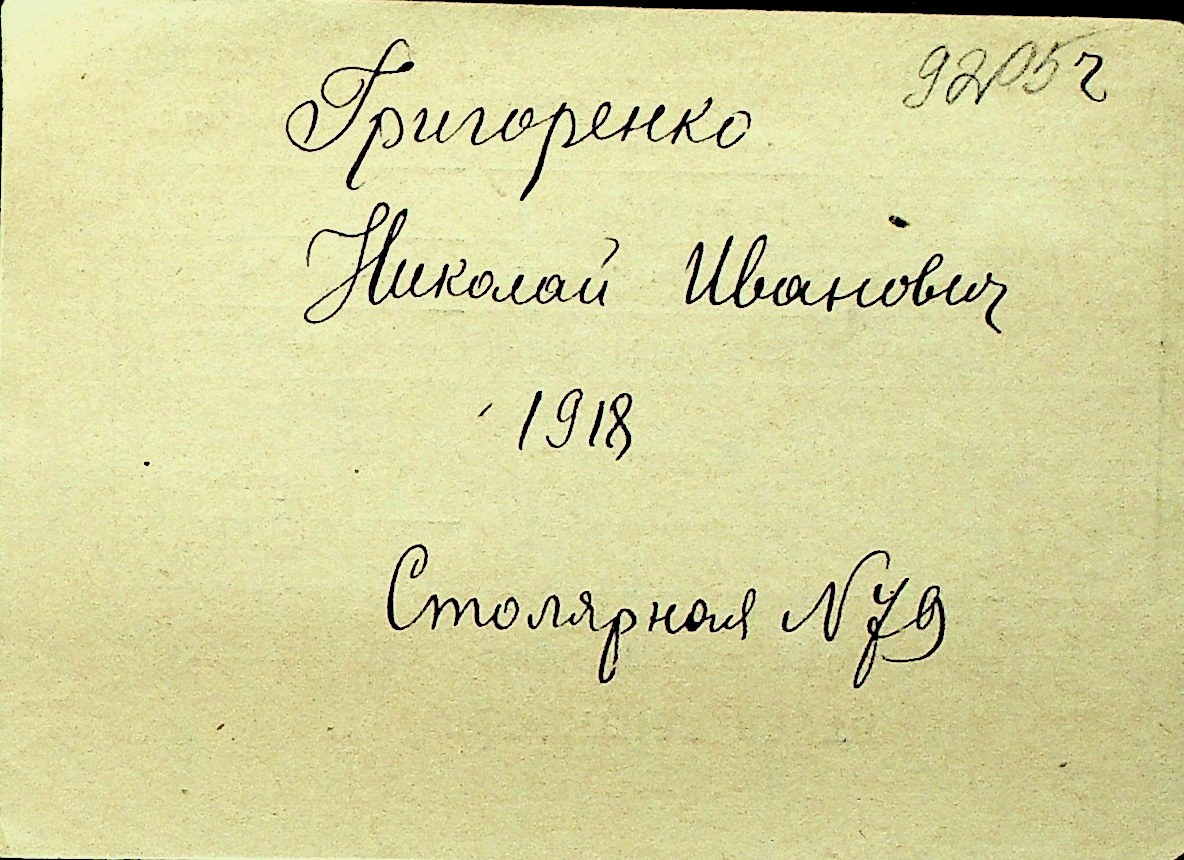 9205г
Григоренко
Николай Иванович
1918
Столярная N 79